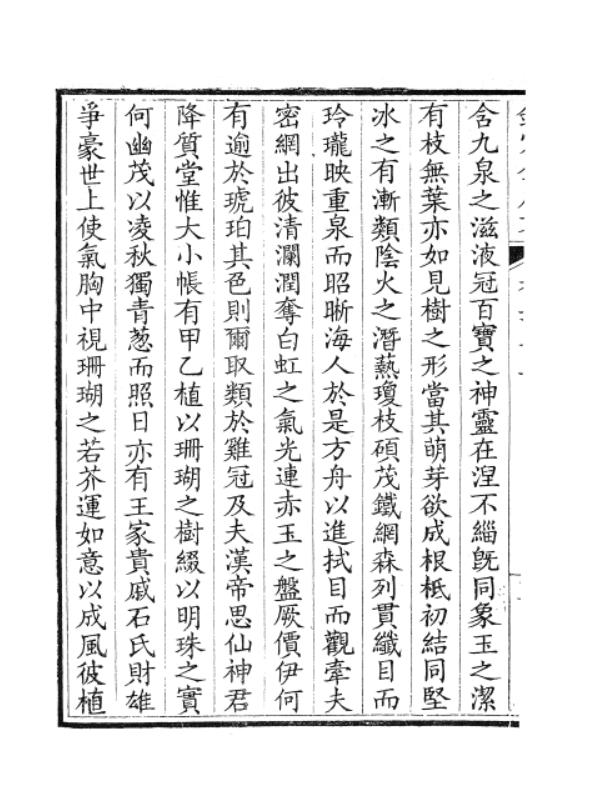 含九泉之滋液冠百寶之神靈在涅不緇旣同象玉之潔
有枝無葉亦如見樹之形當其萌芽欲成根柢初結同堅
冰之有漸類陰火之潛熱瓊枝碩茂鐵網森列貫纖目而
玲瓏映重泉而昭晰海人於是方舟以進拭目而觀牽夫
密網出彼清瀾潤奪白虹之氣光連赤玉之盤厥價伊何
有逾於琥珀其色則爾取類於雞冠及夫漢帝思仙神君
降質堂惟大小帳有甲乙植以珊瑚之樹綴以明珠之實
何幽茂以凌秋獨青葱而照日亦有王家貴戚石氏財雄
爭豪世上使氣胸中視珊瑚之若芥運如意以成風彼植